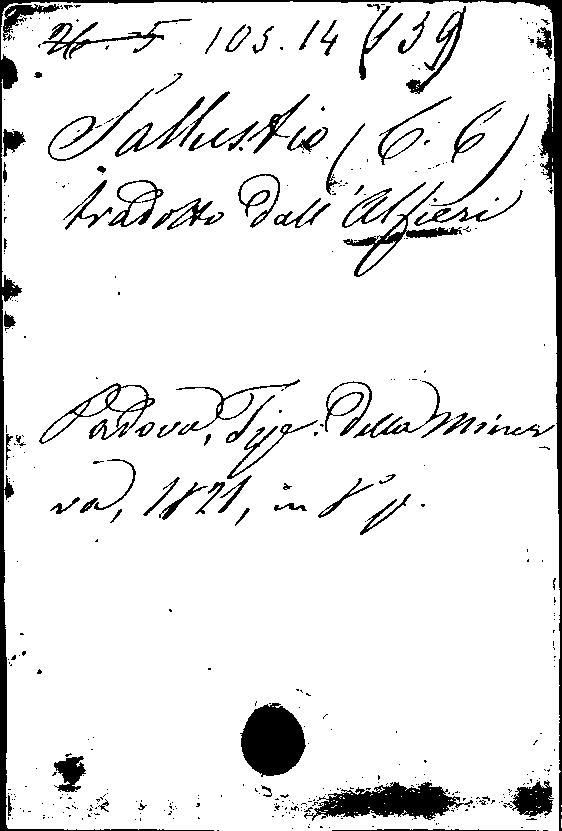 26. 5 103.14 (139)
Sallustio (C. C)
tradotto dall' Alfieri
Padova, Tip. della Miner
va, 1821, in 8° p.